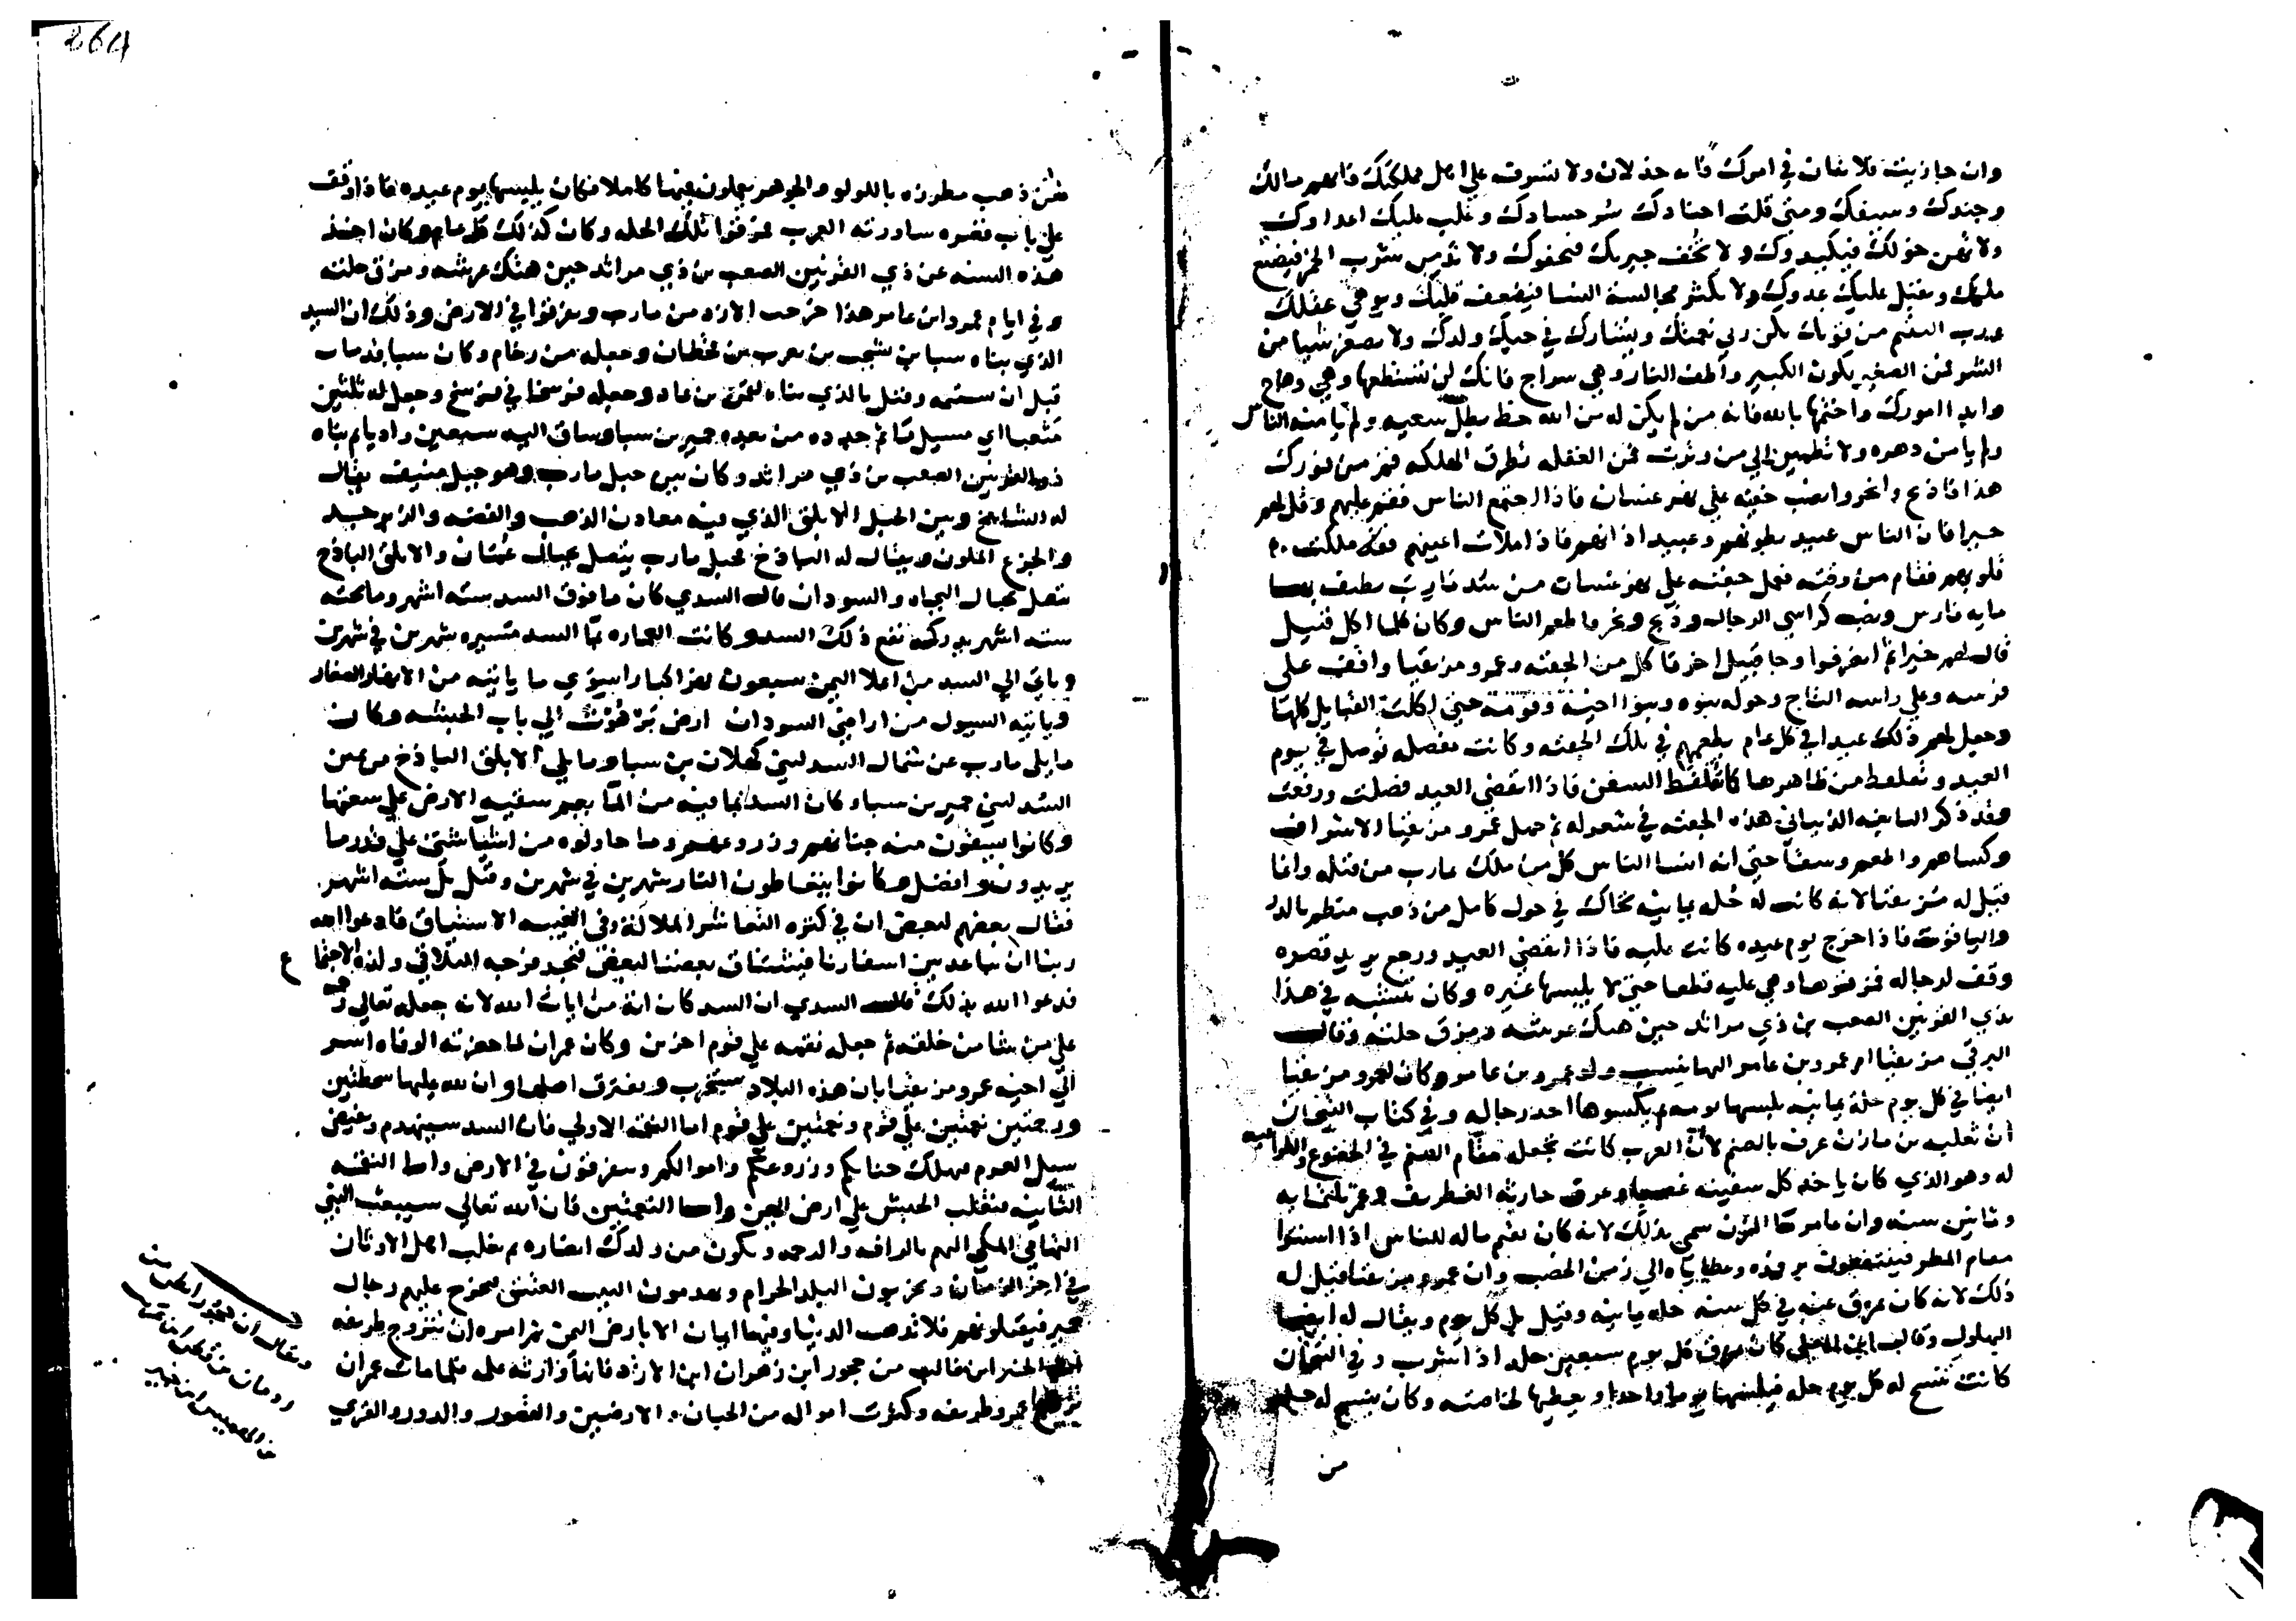 وان جازيته فلا تفات في امرك فانه خذلان ولا تسرف علي اهل مملكتك فانهم مالك
وجندك وسيفك ومتي قلت اجنادك سر حسادك وغلب عليك اعداوك
ولا تهن خولك فيكيدوك ولا تخف جيرانك فتحفوك ولا تدمن شرب الخمر فيضيع
ملكك ويقبل عليك عدوك ولا تكثر مجالسة النسا فيضعف قلبك ويوهي عقلك
النشو فمن الصغير يكون الكبير واطف النار وهي سراج فانك لن تستطعها وهي وهاج
وابدا امورك واختمها بالله فانه من لم يكن له من الله حظ بطل سعيه ولم يامنه الناس
ولم يامن دهره ولا تطمين الي من وترت فمن الغفله تطرق الهلكه
هذا فاذبح وانحر وانصب جفنه علي نهر غسان فاذا اجتمع الناس فقم عليهم وقل لهم
خيرا فان الناس عبيد بطونهم وعبيد اذانهم فاذا املات اعينهم فقد ملكت
قلوبهم فقام من وقته فجعل جفنته علي نهر غسان من سد مارب يطيف بها
مايه فارس ونصب كراسي الرجال وذبح ونحر واطعم الناس وكان كلما اكل قبيل
قال لهم خيرا ثم انصرفوا وجا قبيل اخر فاكل من الجفنه وعمرو مزيقيا واقف علي
فرسه وعلي راسه التاج وحوله بنوه وبنوا اخيه وقومه حتي اكلت القبايل كلها
وجعل لهم ذلك عيدا في كل عام يطعمهم في تلك الجفنه وكانت مفصله توصل في يوم
العيد وتغلفط من ظاهرها كما تغلفط السفن فاذا انقضي العيد فصلت ورفعت
وقد ذكر النابغه الذبياني هذه الجفنه في شعر له ثم حمل عمرو مزيقيا الاشراف
وكساهم واطعم وسقا حتي انه انسا الناس كل من ملك بمارب من قبله وانما
قيل له مزيقيا لانه كانت له حله يمانيه تحاك في حول كامل من ذهب منظم بالدر
والياقوت فاذا خرج يوم عيده كانت عليه فاذا انقضي العيد ورجع يريد قصره
وقف لرجاله فمزقوها وهي عليه قطعا حتي لا يلبسها غيره وكان تشبه في هذا
بذي القرنين الصعب بن ذي مراثد حين هتك عرشه ومزق حلته وقال
البرقي مزيقيا ام عمرو بن عامر اليها ينسب ولد عمرو بن عامر وكان لعمرو مزيقيا
ايضا في كل يوم حلة يمانيه يلبسها يومه ثم يكسوها احد رجاله وفي كتاب التيجان
ان ثعلبه بن مازن عرف بالصنم لان العرب كانت تجعله مقام الصنم في الخضوع والطواعيه
له وهو الذي كان ياخذ كل سفينه غصبا وعرف حارثه الغطريف وعمر ثلثمايه
وثمانين سنه وان عامر ما المزن سمي بذلك لانه كان يقيم ماله للناس اذا اسنتوا
مقام المطر فينتفعون برفده وعطاياه الي زمن الخصب وان عمرو مزيقيا قيل له
ذلك لانه كان يمزق عنه في كل سنه حله يمانيه وقيل بل كل يوم ويقال له ايضا
البهلول وقال ابن الكلبي كان يمزق كل يوم سبعين حله اذا شرب وفي التيجان
كانت تنسج له كل يوم حله فيلبسها يوما واحدا ويعطيها لخاصته وكان ينسج له حله
من
ذهب مطرزه باللولو والجوهر يعملون فيها كاملا فكان يلبسها يوم عيده فاذا وقف
علي باب قصره ساورته العرب فمزقوا تلك الحله وكان كذلك كل عام وكان اخذ
هذه السنه عن ذي القرنين الصعب بن ذي مراثد حين هتك عرشه ومزق حلته
وفي ايام عمرو ابن عامر هذا خرجت الازد من مارب وتفرقوا في الارض وذلك ان السد
الذي بناه سبا بن يشجب بن يعرب بن قحطان وجعله من رخام وكان سبا قد مات
قبل ان يستتمه وقيل بل الذي بناه لقمن بن عاد وجعله فرسخا في فرسخ وجعل له ثلثين
مثعبا اي مسيل ما ثم جدده من بعده حمير بن سبا وساق اليه سبعين واديا ثم بناه
ذو القرنين الصعب بن ذي مراثد وكان بين جبل مارب وهو جبل منيف يقال
له الشامخ وبين الجبل الابلق الذي فيه معادن الذهب والفضه والزبرجد
والجزع الملون ويقال له الباذخ فجبل مارب يتصل بجبال عمان والابلق الباذخ
يتصل بجبال البجاه والسودان قال السدي كان ما فوق السد سته اشهر وما تحته
سته اشهر يدركه نفع ذلك السد وكانت العماره بما السد مسيره شهرين في شهرين
وياتي الي السد من اعلا اليمن سبعون نهرا كبارا سوي ما ياتيه من الانهار الصغار
وياتيه السيول من اراضي السودان ارض برهوت الي باب الحبشه وكان
ما يلي مارب عن شمال السد لبني كهلان بن سبا وما يلي الابلق الباذخ من يمين
السد لبني حمير بن سبا وكان السد بما فيه من الما يعم سقيه الارض علي سعتها
وكانوا يسقون منه جناتهم وزروعهم وما حاولوه من اشيا شتي علي قدر ما
يريدون وافضل وكانوا يتعاطون النار شهرين في شهرين وقيل بل سته اشهر
فقال بعضهم لبعض ان في كثره التعاشر الملاله وفي الغيبه الاشتياق فادعوا الله
ربنا ان يباعد بين اسفارنا فيشتاق بعضنا لبعض فنجد فرحه التلاقي ولذه الاجتماع
فدعوا الله بذلك قال السدي ان السد كان اية من ايات الله لانه جعله تعالي رحمه
علي من يشا من خلقه ثم جعله نقمه علي قوم اخرين وكان عمران لما حضرته الوفاه اسر
الي اخيه عمرو مزيقيا بان هذه البلاد ستخرب ويفترق اهلها وان لله عليها سخطتين
ورحمتين نعمتين علي قوم ونقمتين علي قوم اما النقمه الاولي فان السد سينهدم ويفيض
سيل العرم فيهلك جناتكم وزروعكم واموالكم وتتفرقون في الارض واما النقمه
الثانيه فتغلب الحبش علي ارض اليمن واما النعمتين فان الله تعالي سيبعث النبي
التهامي المكي اليهم بالرافه والرحمه ويكون من ولدك انصاره ثم يغلب اهل الاوثان
في اخر الزمان ويخربون البلد الحرام ويهدمون البيت العتيق فيخرج عليهم رجال
حمير فيقتلونهم فلا تذهب الدنيا وفيها ايمان الا بارض اليمن ثم امره ان يتزوج طريفه
الخير ابن غالب من حجور ابن زهران ابن الازد فانها وارثه علمه فلما مات عمران
تزوج عمرو طريفه وكثرت امواله من الجنان والارضين والقصور والدور والقري